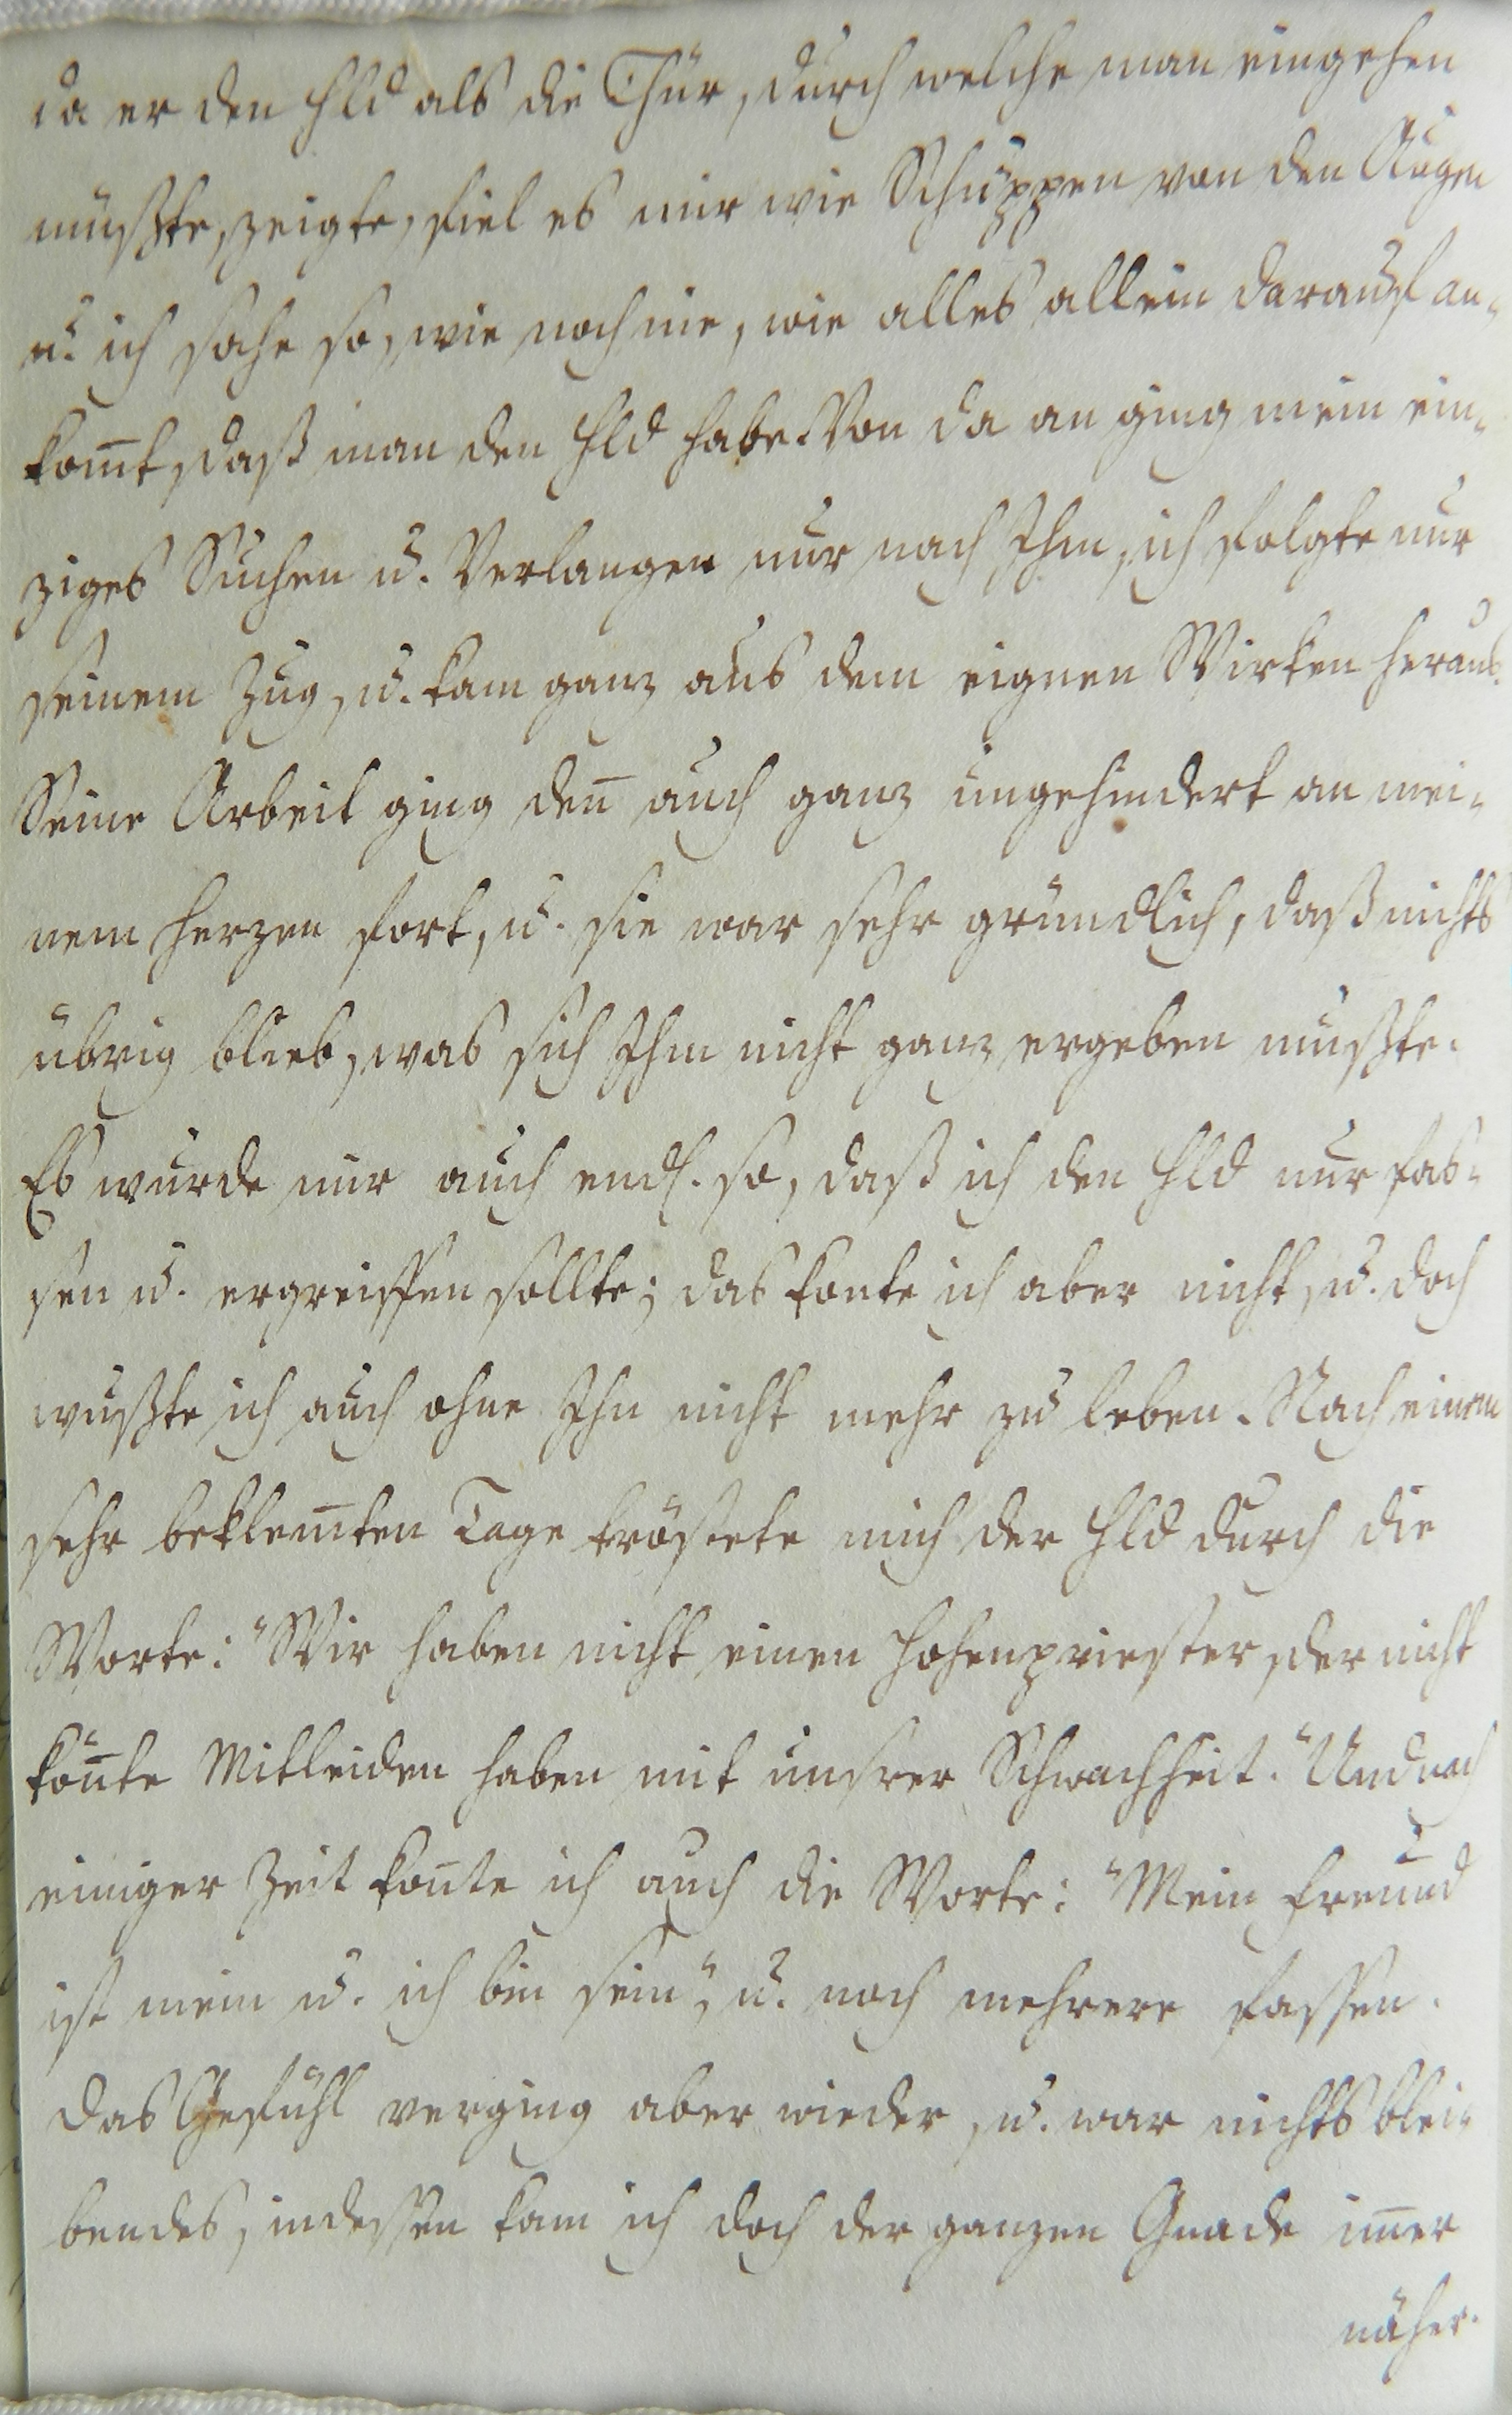 da er den Hld als die Thür, durch welche man eingehen
müßte, zeigte, fiel es mir wie Schuppen von den Augen
u. ich sahe so, wie noch nie, wie alles allein darauf an-
kom̄t, daß man den Hld habe. Von da an ging mein ein-
ziges Suchen u. Verlangen nur nach Ihm, ich folgte nur
seinem Zug, u. kam ganz aus dem eignen Wirken heraus.
Seine Arbeit ging den̄ auch ganz ungehindert an mei-
nem Herzen fort, u. sie war sehr gründlich, daß nichts
übrig blieb, was sich Ihm nicht ganz ergeben mußte.
Es wurde mir auch endl. so, daß ich den Hld nur fas-
sen u. ergreiffen sollte; das konte ich aber nicht, u. doch
wußte ich auch ohne Ihn nicht mehr zu leben. Nach einem
sehr beklem̄ten Tage tröstete mich der Hld durch die
Worte: "Wir haben nicht einen Hohenpriester, der nicht
kön̄te Mitleiden haben mit unsrer Schwachheit." Und nach
einiger Zeit kon̄te ich auch die Worte: "Mein Freund
ist mein u. ich bin sein", u. noch mehrere fassen.
Das Gefühl verging aber wieder, u. war nichts blei-
bendes, indessen kam ich doch der ganzen Gnade im̄er
näher.